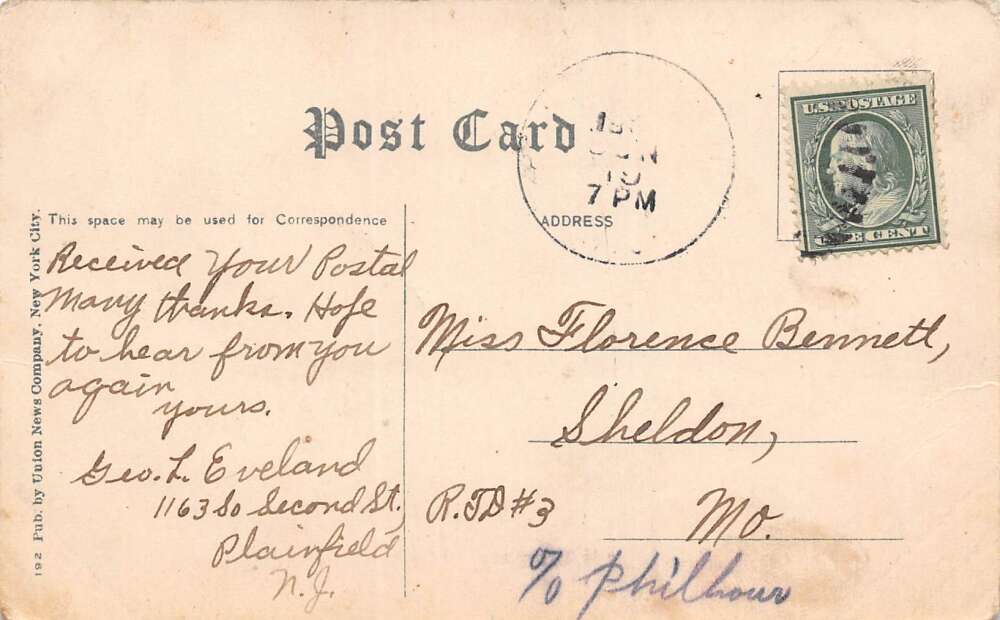 Post Card
7 PM
U.S. POSTAGE
ONE CENT
This space may be used for Correspondence
ADDRESS
Received Your Postal
Many thanks. Hope
to hear from you
again
yours.
Geo. L. Eveland
1163 So Second St.
Plainfield
N.J.
Miss Florence Bennett,
Sheldon,
R.F.D #3 Mo.
c/o Philhour
192 Pub. by Union News Company, New York City.